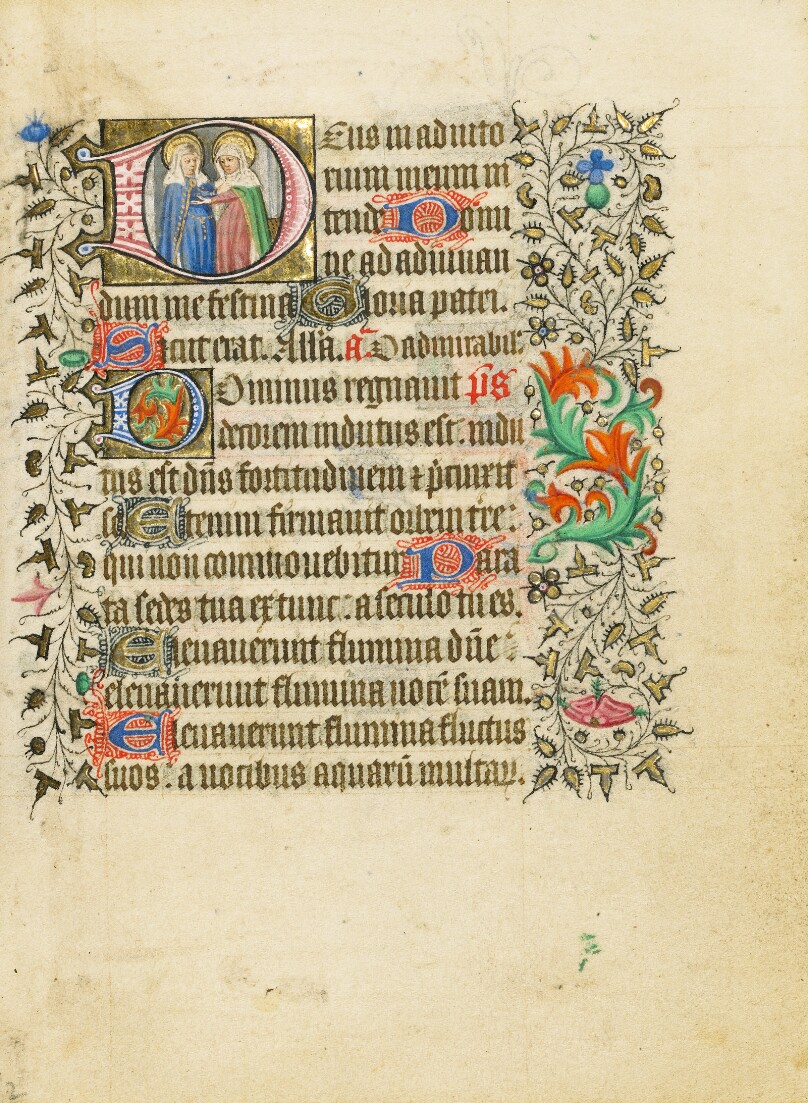 Deus in adiuto
rium meum in
tende Domi
ne ad adiuuan
dum me festina Gloria patri.
Sicut erat. Alla. a. O admirabil'.
Dominus regnauit p̄s
decorem indutus est: indu
tus est dn̄s fortitudinem ⁊ p̄cinxit
se Etenim firmauit orbem tr̄e:
qui non commouebitur Para
ta sedes tua ex tunc: a seculo tu es.
Eleuauerunt flumina dn̄e:
eleuauerunt flumina uocē suam.
Eleuauerunt flumina fluctus
suos: a uocibus aquarū multaꝝ.